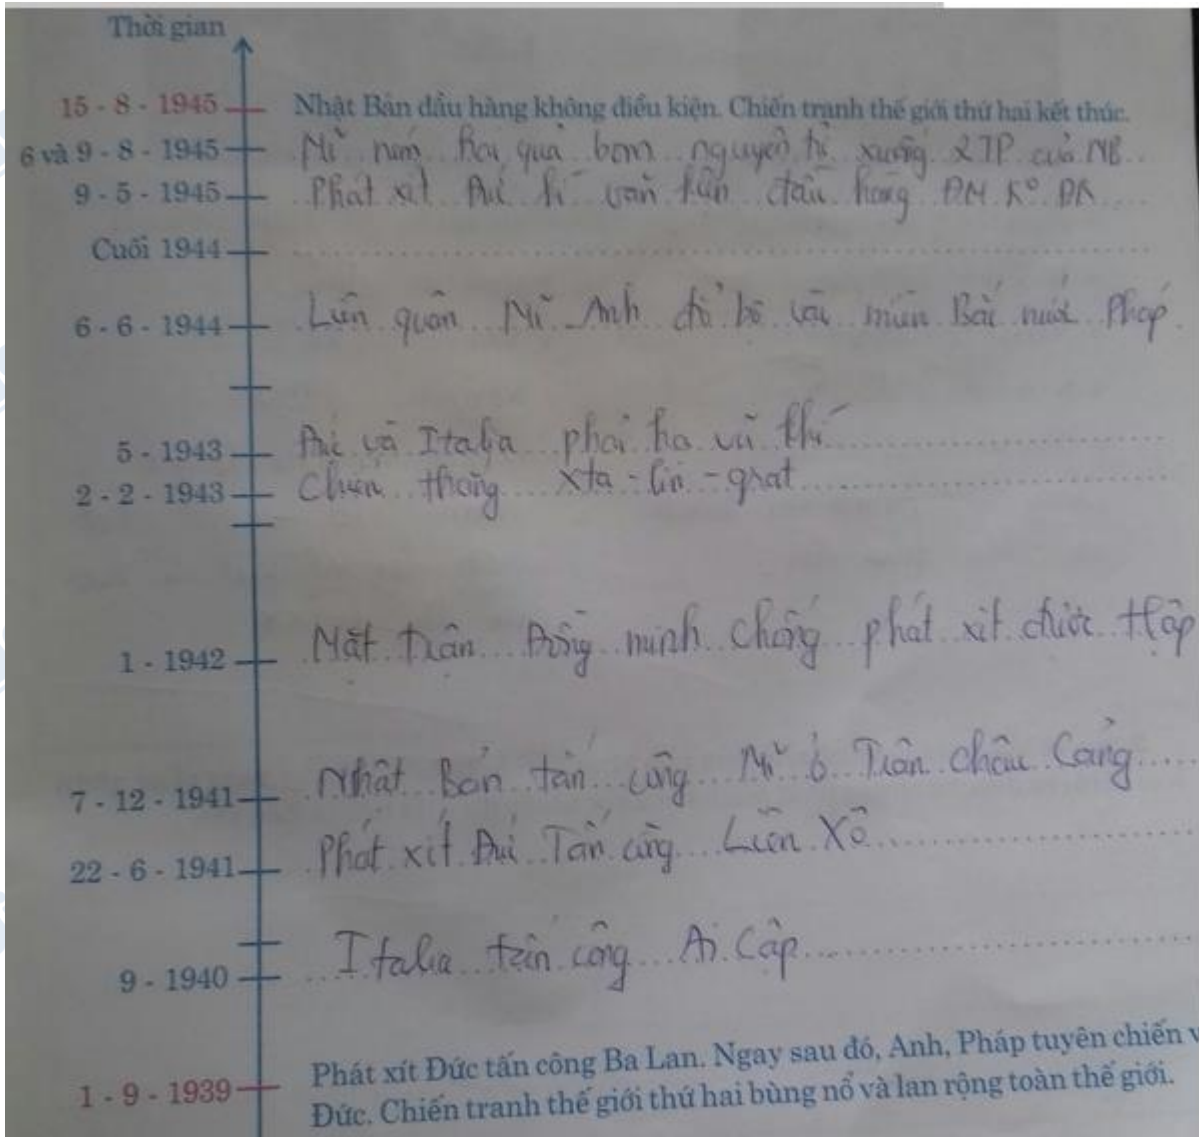 Thời gian
15 - 8 - 1945 Nhật Bản đầu hàng không điều kiện. Chiến tranh thế giới thứ hai kết thúc.
6 và 9 - 8 - 1945 Mĩ ném hai quả bom nguyên tử xuống 2 TP của NB
9 - 5 - 1945 Phát xít Đức kí văn kiện đầu hàng ĐM K° ĐK
Cuối 1944
6 - 6 - 1944 Liên quân Mĩ Anh đổ bộ vào miền Bắc nước Pháp
5 - 1943 Đức và Italia phải hạ vũ khí
2 - 2 - 1943 Chiến thắng Xta - lin - grat
1 - 1942 Mặt trận Đồng minh chống phát xít được
7 - 12 - 1941 Nhật Bản tấn công Mĩ ở Trân Châu Cảng
22 - 6 - 1941 Phát xít Đức Tấn công Liên Xô
9 - 1940 Italia tấn công Ai Cập
1 - 9 - 1939 Phát xít Đức tấn công Ba Lan. Ngay sau đó, Anh, Pháp tuyên chiến
Đức. Chiến tranh thế giới thứ hai bùng nổ và lan rộng toàn thế giới.